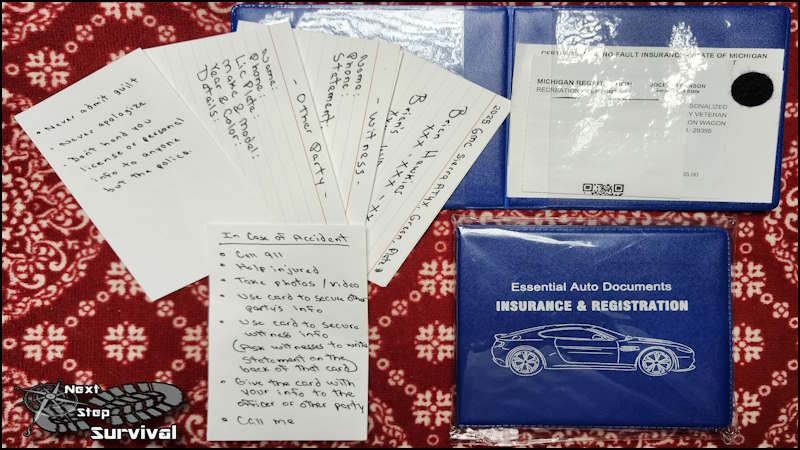 • Never admit guilt
• Never apologize
• Don't hand you
license or personal
info to anyone
but the police.
- Other Party -
Name:
Phone:
Lic Plate:
Make & Model:
Year & Color:
Details:
- Witness -
Name:
Phone:
Statement:
2025 GMC Sierra AT4X, Green, Plate
Brian Hawkins
xxx-xxx-xx
Brian's
xxx
NO-FAULT INSURANCE
STATE OF MICHIGAN
MICHIGAN REGIST
RECREATION
JOCE
SON
SONALIZED
Y VETERAN
ON WAGON
In Case of Accident
• Call 911
• Help injured
• Take photos / video
• Use card to secure other
party's info
• Use card to secure
witness info
(ask witnesses to write
statement on the
back of that card)
• Give the card with
your info to the
officer or other party
• Call me
Essential Auto Documents
INSURANCE & REGISTRATION
Next
Step
Survival